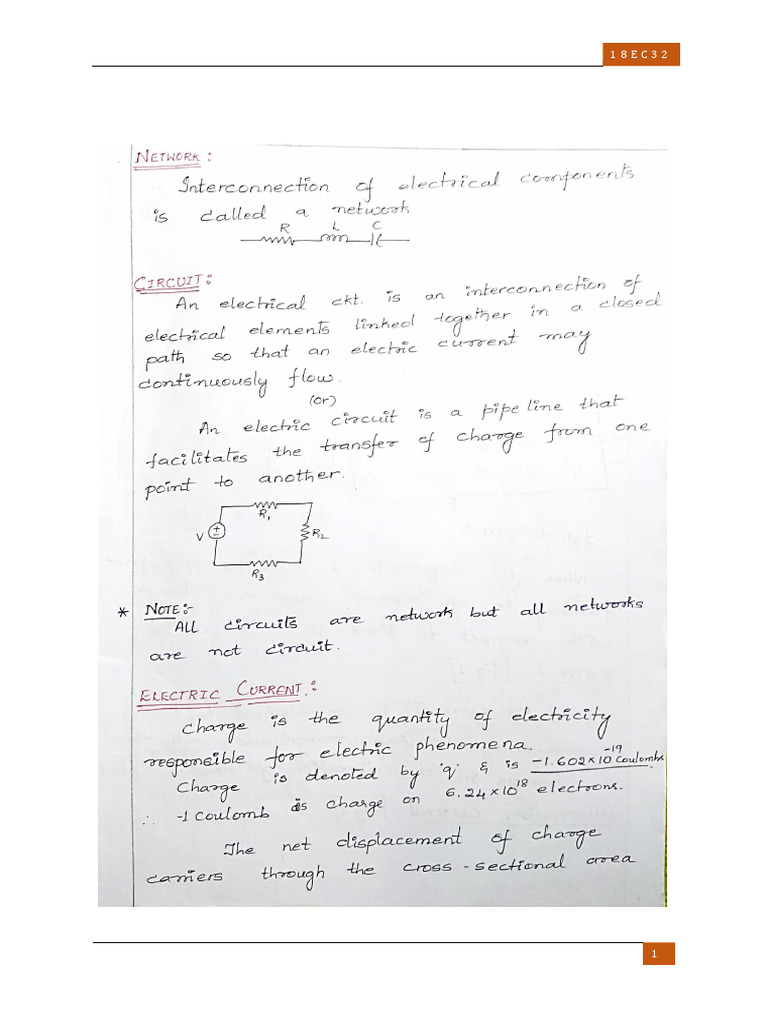 18EC32
NETWORK:
Interconnection of electrical components
is called a network
R L C
CIRCUIT:
An electrical ckt. is an interconnection of
electrical elements linked together in a closed
path so that an electric current may
continuously flow.
(or)
An electric circuit is a pipeline that
facilitates the transfer of charge from one
point to another.
R1
V + R2
R3
* NOTE:-
All circuits are network but all networks
are not circuit.
ELECTRIC CURRENT:
Charge is the quantity of electricity
responsible for electric phenomena.
Charge is denoted by 'q' & is -1.602×10^-19 coulombs.
∴ -1 coulomb is charge on 6.24×10^18 electrons.
The net displacement of charge
carriers through the cross-sectional area
1